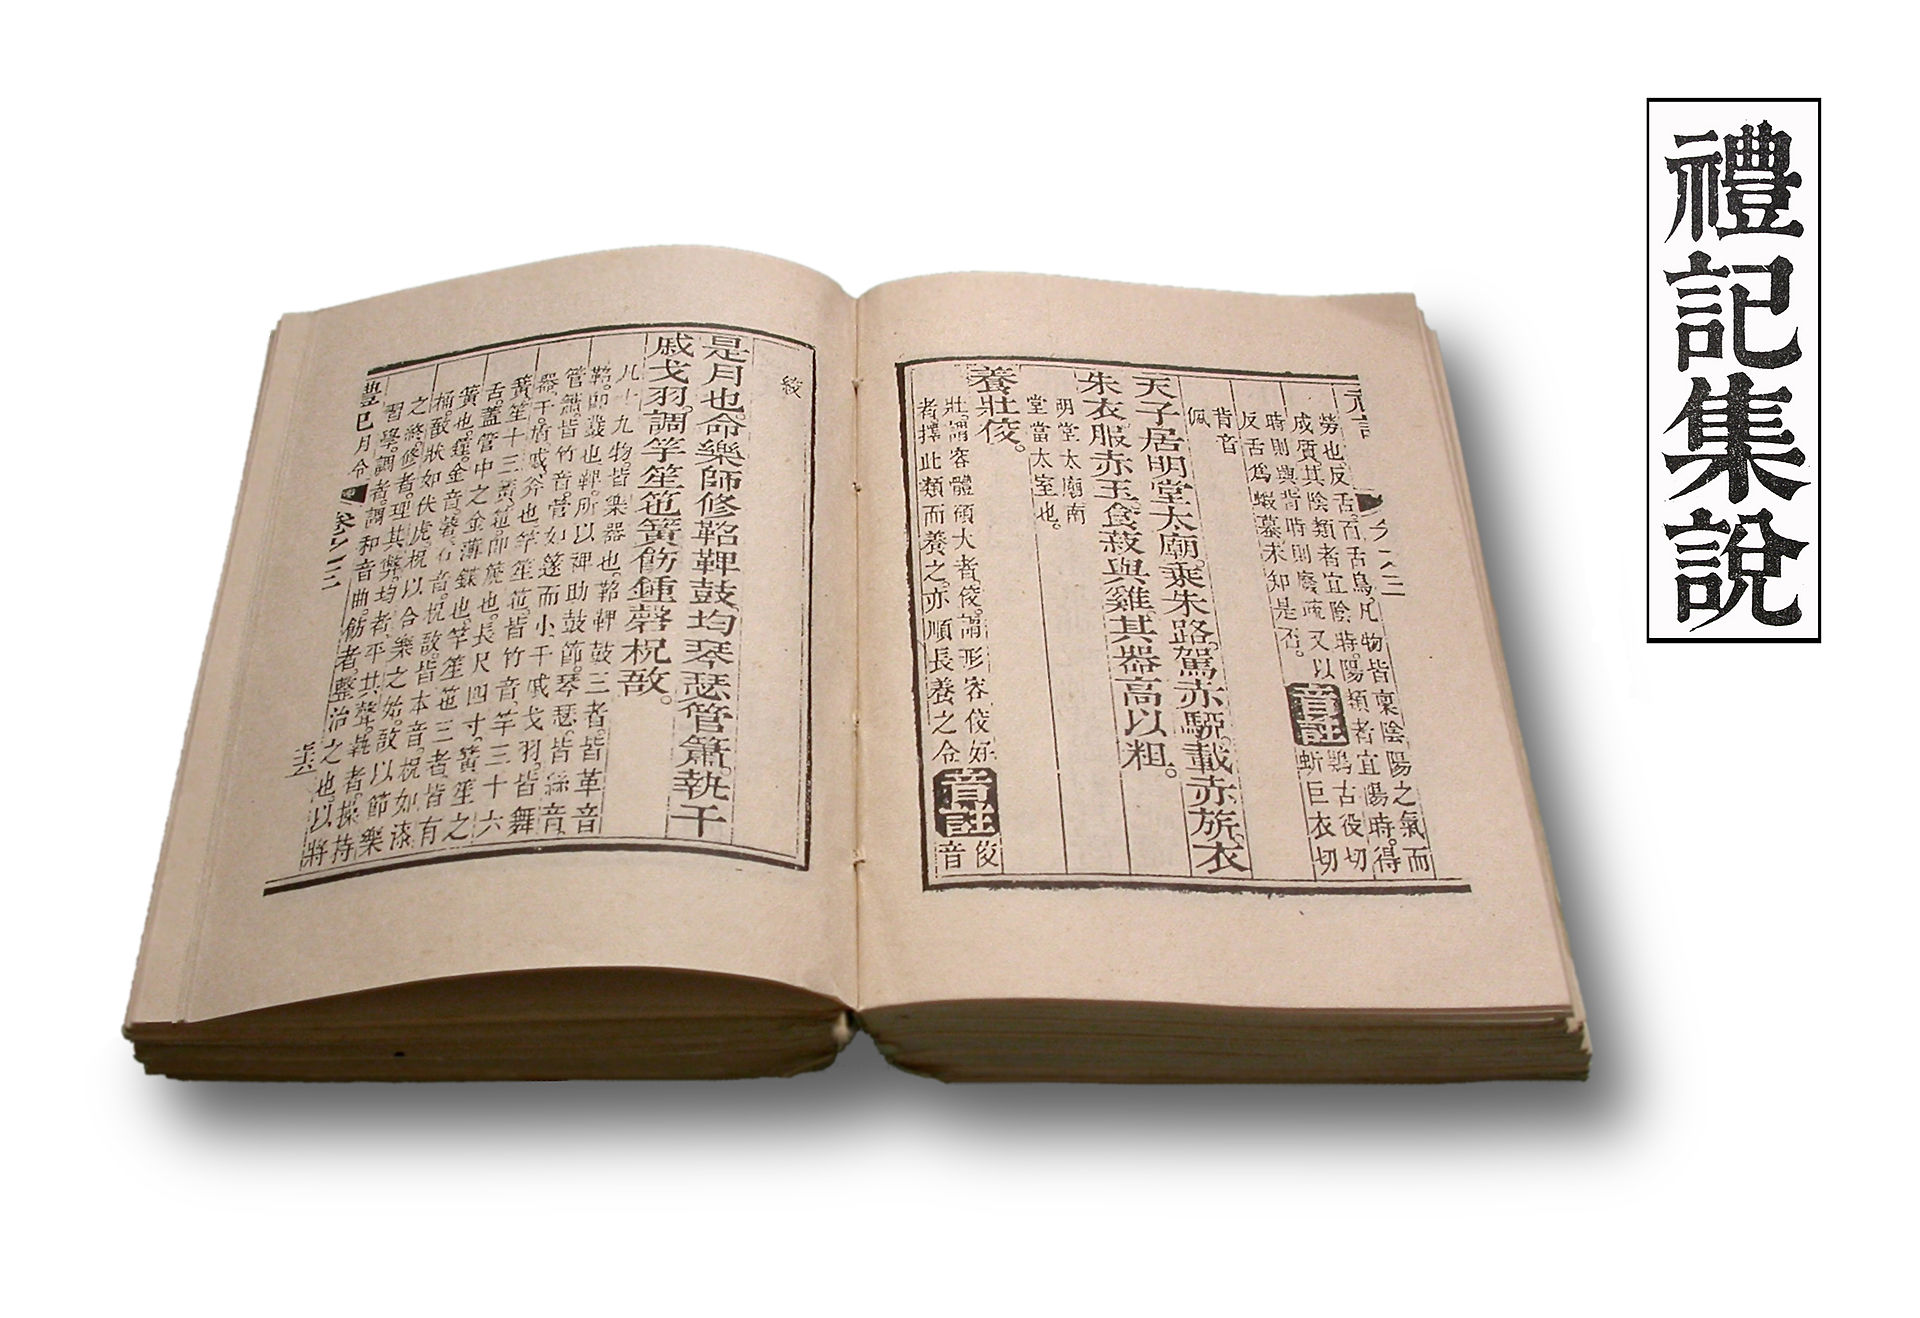 禮記集說
勞也反舌百舌鳥凡物皆稟陰陽之氣而
成質其陰類者宜陰時陽類者宜陽時得
時則興背時則廢疏又以
反舌爲蝦蟇未知是否
音註
鶪古役切
蚈巨衣切
背音
佩
天子居明堂太廟乘朱路駕赤駵載赤旂衣
朱衣服赤玉食菽與雞其器高以粗
明堂太廟南
堂當太室也
養壯佼
壯謂容體碩大者佼謂形容佼好
者擇此類而養之亦順長養之令
音註
佼
音
絞
是月也命樂師修鞀鞞鼓均琴瑟管簫執干
戚戈羽調竽笙竾簧飭鍾磬柷敔
凡十九物皆樂器也鞀鞞鼓三者皆革音
鞀卽鼗也鞞所以裨助鼓節琴瑟皆絲音
管簫皆竹音管如篴而小干戚戈羽皆舞
器干盾戚斧也竽笙竾皆竹音竽三十六
簧笙十三簧竾卽篪也長尺四寸簧笙之
舌蓋管中之金薄鍱也竽笙竾三者皆有
簧也鍾金音磬石音柷敔皆木音柷如漆
桶敔狀如伏虎柷以合樂之始敔以節樂
之終修者理其弊均者平其聲執者操持
習學調者調和音曲飭者整治之也以將
豊巳月令
卷之三